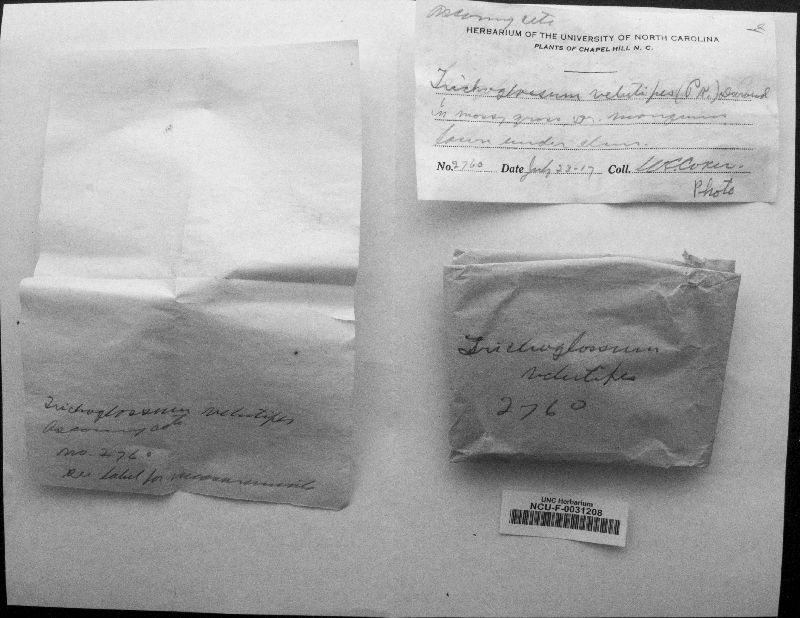 Ascomycete
HERBARIUM OF THE UNIVERSITY OF NORTH CAROLINA
PLANTS OF CHAPEL HILL N. C.
Trichoglossum velutipes (Pk.) Durand
in mossy grass,
lawn under elms.
No. 2760 Date July 23-17 Coll. W.C. Coker.
Photo
Trichoglossum
velutipes
2760
Trichoglossum velutipes
Ascomycete
no. 2760
see label for measurements
UNC Herbarium
NCU-F-0031208